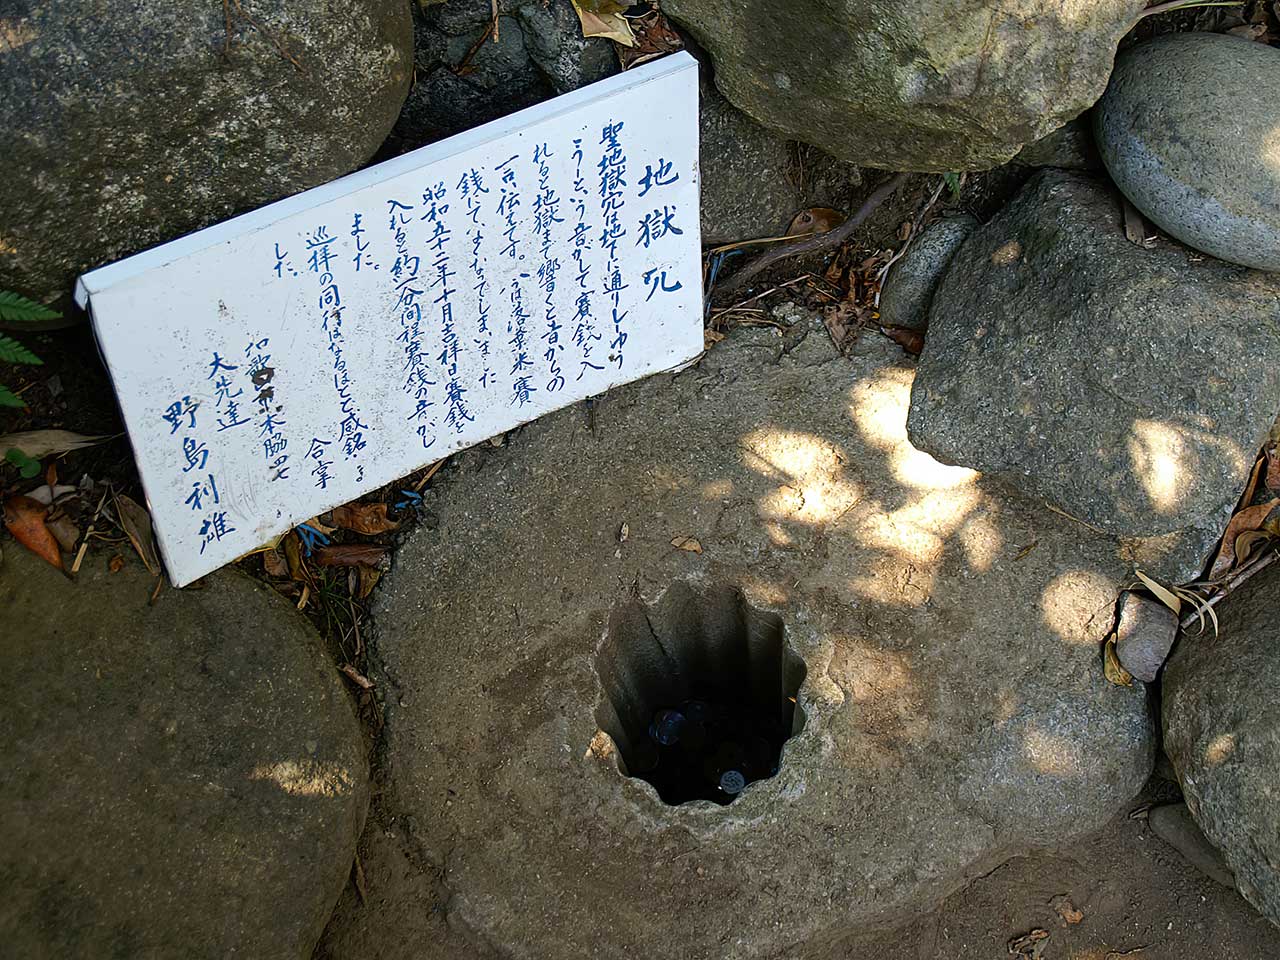 地獄穴
聖地獄穴は地下に通りしーゆう
ごうーという音がして賽銭を入
れると地獄まで響くと昔からの
言い伝えです。今は落葉米賽
銭にてよくなってしまいました
昭和五十二年十月吉祥日賽銭を
入れると約一分間程賽銭の音がし
ました。
巡拝の同行はなるほどと感銘
した。
合掌
本脇四七
大先達
野島利雄